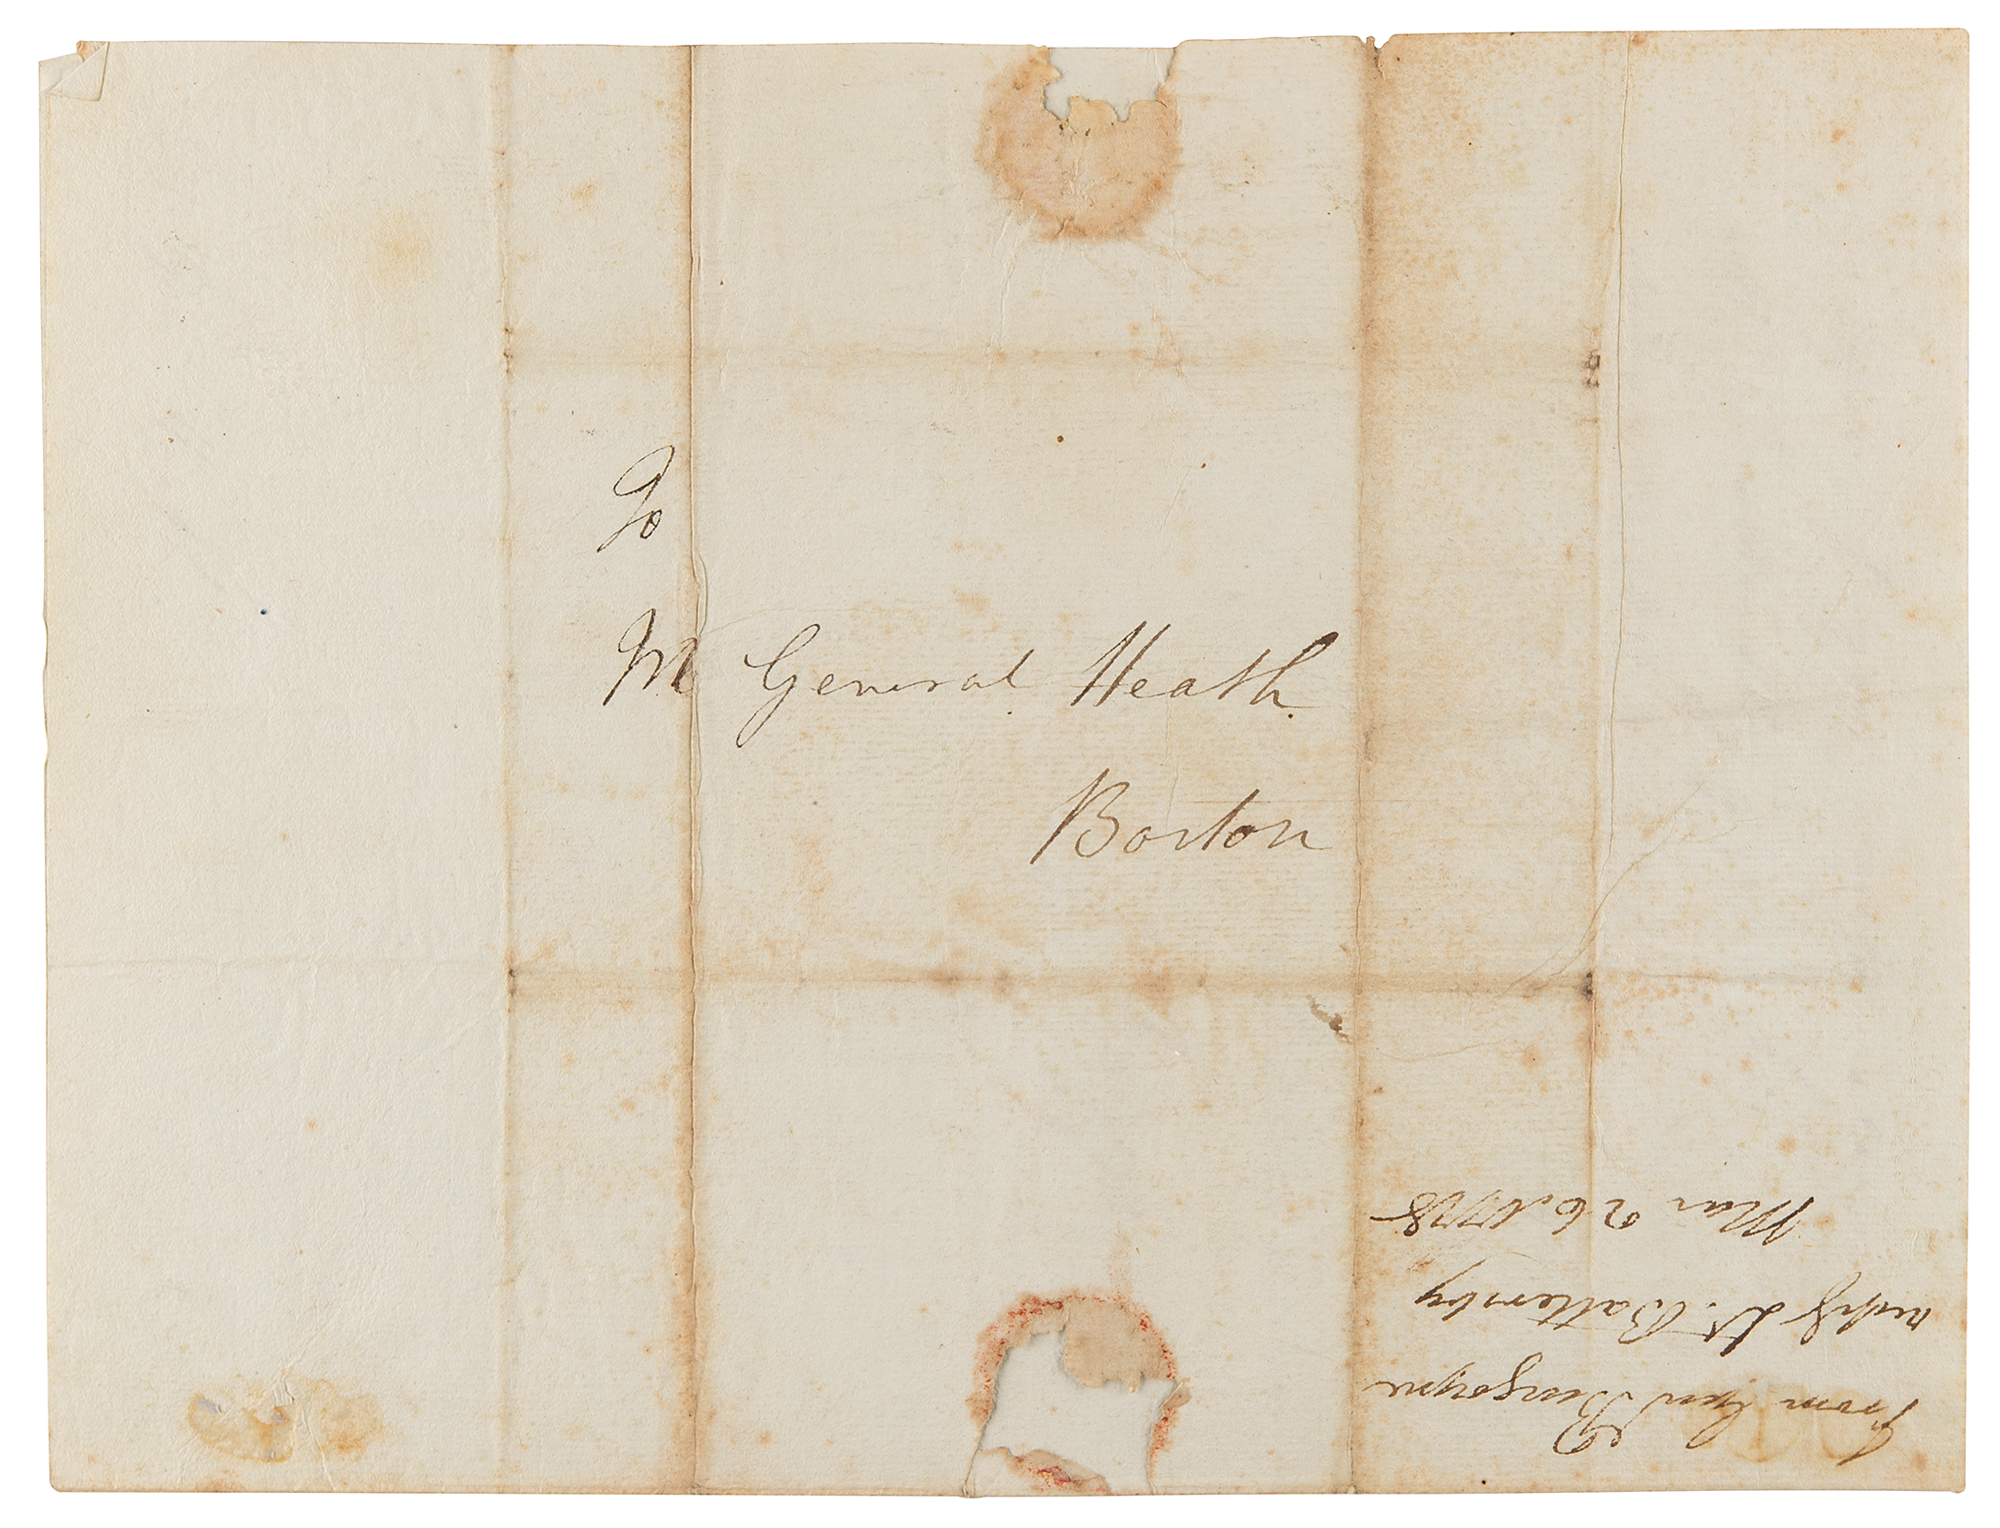 To
M General Heath.
Boston
From Genl Burgoyne
Lt. Battersby
Mar 26. 1778